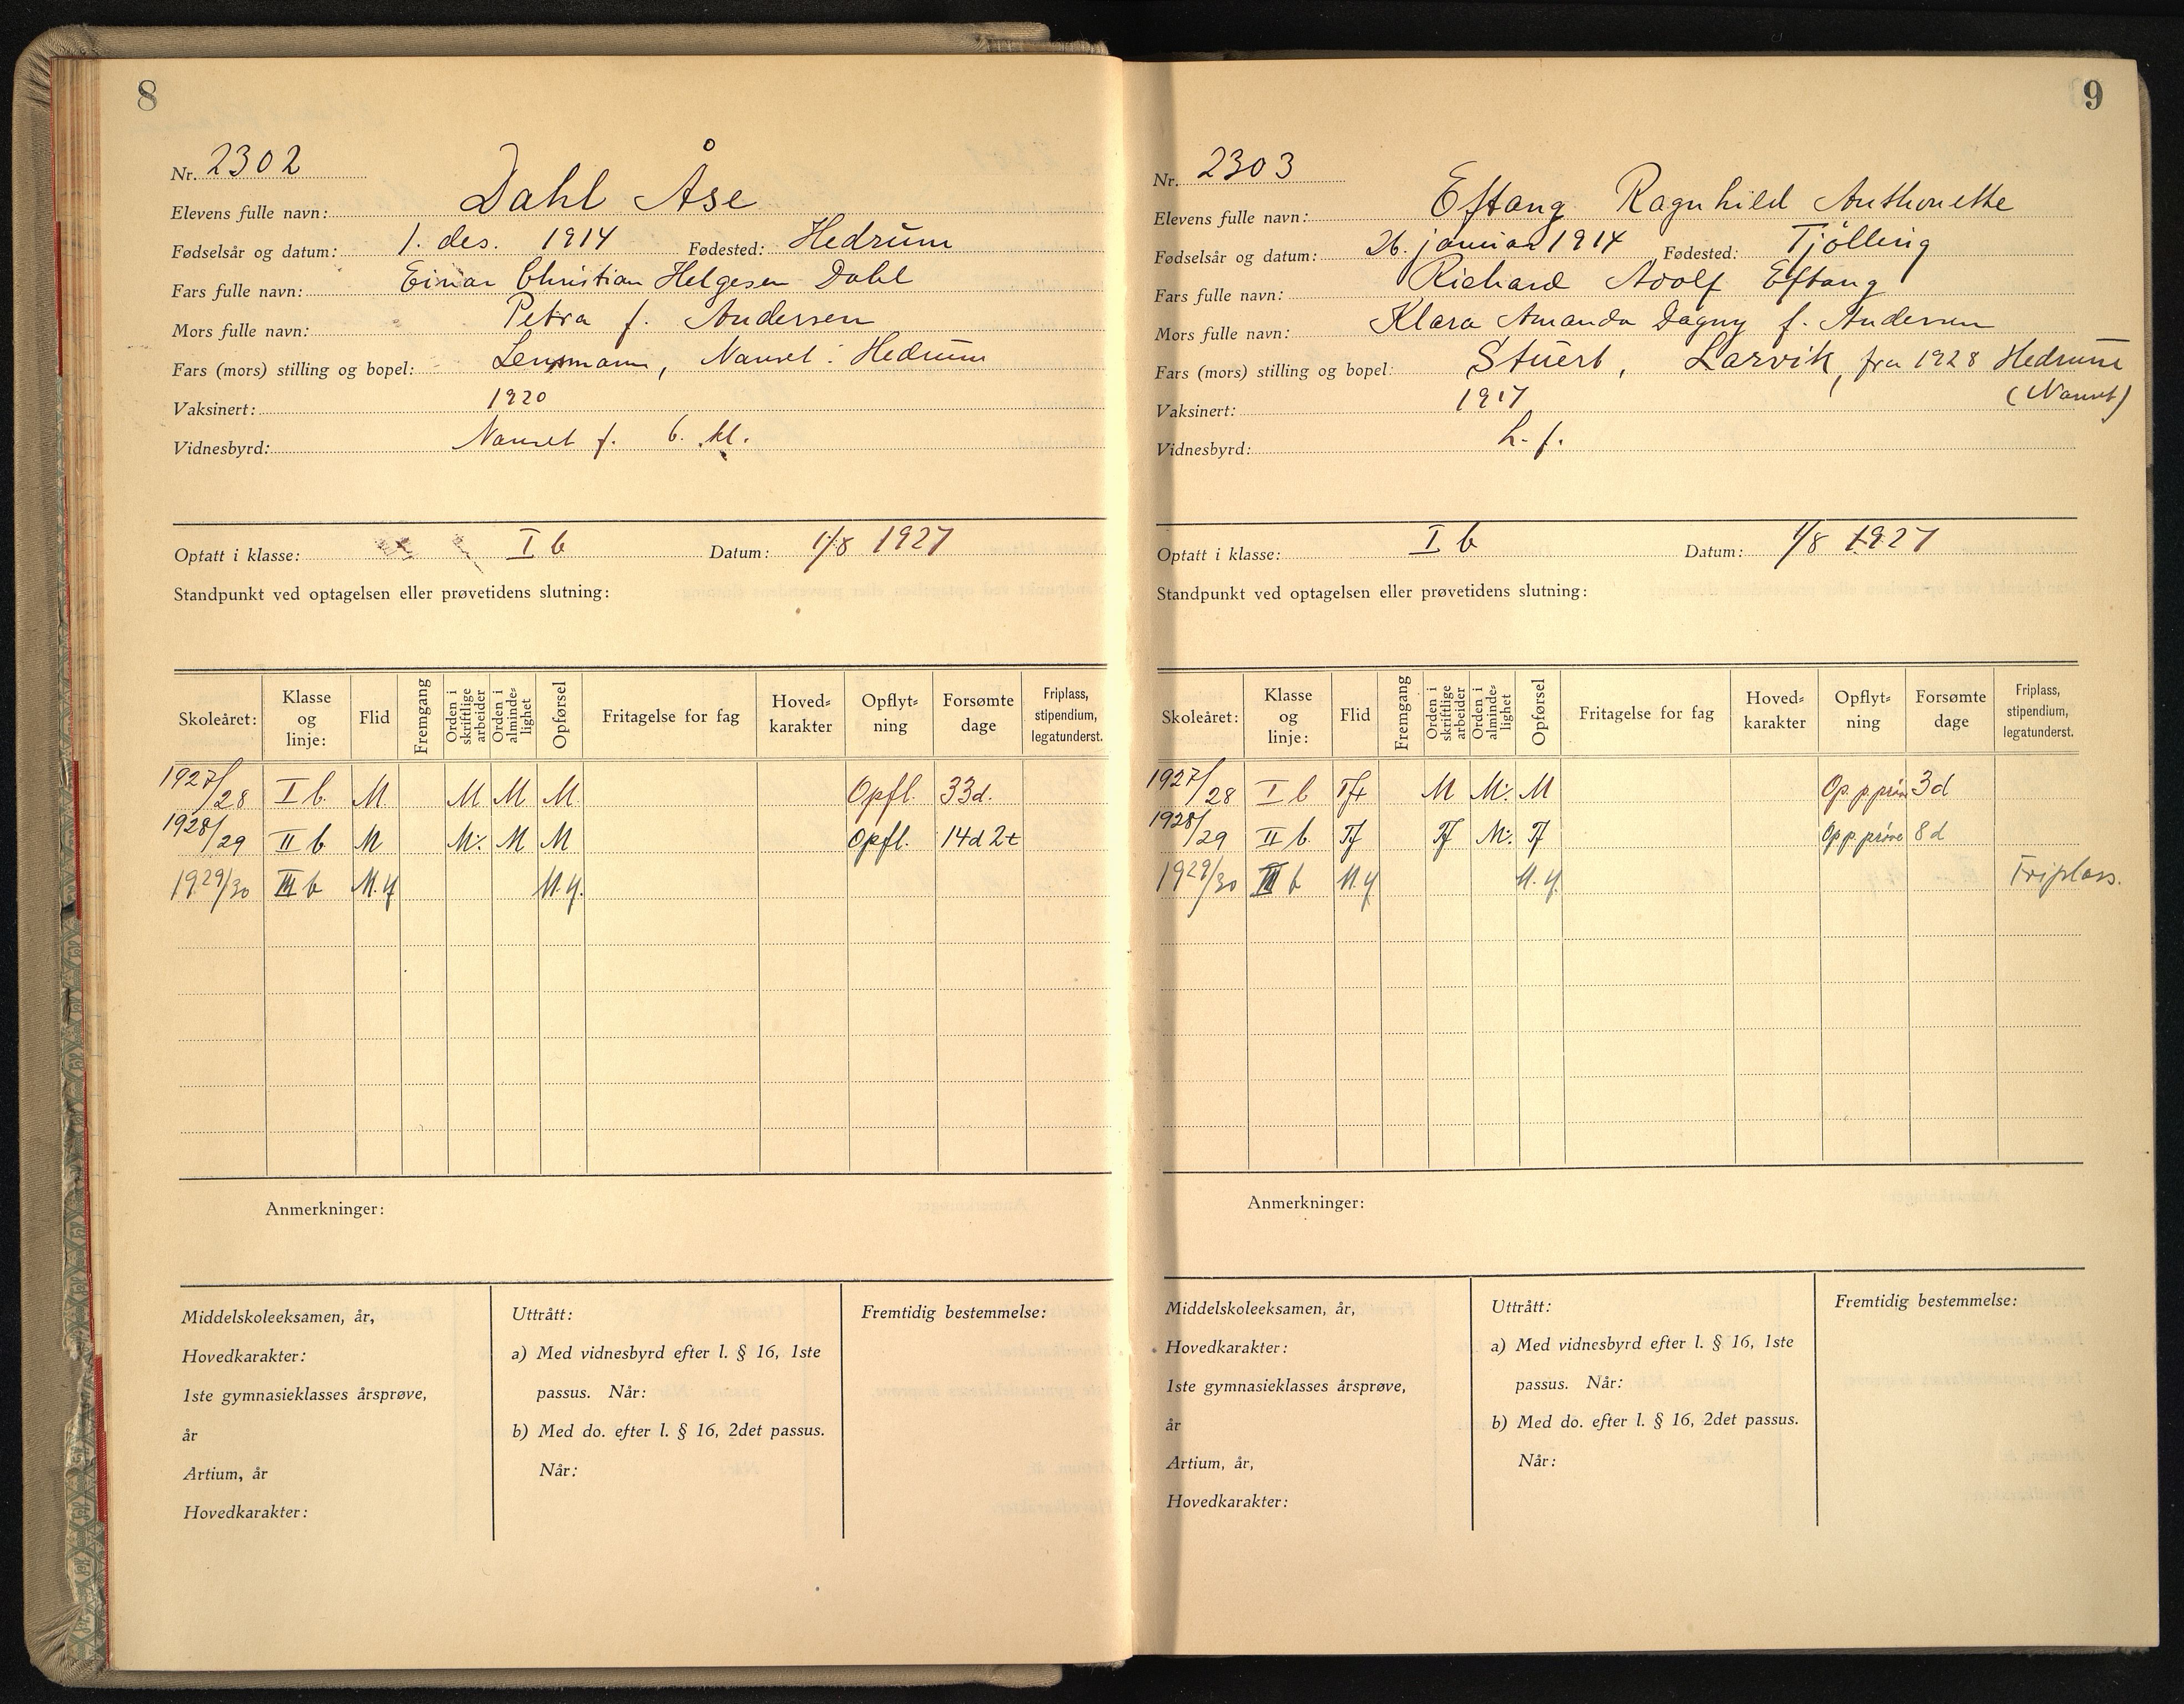 8
Nr. 2302
Elevens fulle navn: Dahl Åse
Fødselsår og datum: 1. des. 1914 Fødested: Hedrum
Fars fulle navn: Einar Christian Helgesen Dahl
Mors fulle navn: Petra f. Andersen
Fars (mors) stilling og bopel: Lensmann, Nanset i Hedrum
Vaksinert: 1920
Vidnesbyrd: Nanset f. 6. kl.
Optatt i klasse: I b Datum: 1/8 1927
Standpunkt ved optagelsen eller prøvetidens slutning:
Skoleåret: Klasse og linje: Flid Fremgang Orden i skriftlige arbeider Orden i alminde= lighet Opførsel Fritagelse for fag Hoved= karakter Opflyt= ning Forsømte dage Friplass, stipendium, legatunderst.
1927/28 I b. M M M M Opfl. 33d.
1928/29 II b M M: M M Opfl. 14d 2t
1929/30 III b M.y M.y.
Anmerkninger:
Middelskoleeksamen, år,
Hovedkarakter:
1ste gymnasieklasses årsprøve,
år
Artium, år
Hovedkarakter:
Uttrått:
a) Med vidnesbyrd efter l. § 16, 1ste
passus. Når:
b) Med do. efter l. § 16, 2det passus.
Når:
Fremtidig bestemmelse:
9
Nr. 2303
Elevens fulle navn: Eftang Ragnhild Anthonette
Fødselsår og datum: 26. januar 1914 Fødested: Tjølling
Fars fulle navn: Richard Adolf Eftang
Mors fulle navn: Klara Amanda Dagny f. Andersen
Fars (mors) stilling og bopel: Stuert, Larvik, fra 1928 Hedrum
(Nanset)
Vaksinert: 1917
Vidnesbyrd: L. f.
Optatt i klasse: I b Datum: 1/8 1927
Standpunkt ved optagelsen eller prøvetidens slutning:
Skoleåret: Klasse og linje: Flid Fremgang Orden i skriftlige arbeider Orden i alminde= lighet Opførsel Fritagelse for fag Hoved= karakter Opflyt= ning Forsømte dage Friplass, stipendium, legatunderst.
1927/28 I b Tf+ M M: M Op. p. prøve 3d
1928/29 II b. Tf Tf M: Tf Op p. prøve 8 d
1929/30 III b M.y M.y. Friplass.
Anmerkninger:
Middelskoleeksamen, år,
Hovedkarakter:
1ste gymnasieklasses årsprøve,
år
Artium, år,
Hovedkarakter:
Uttrått:
a) Med vidnesbyrd efter l. § 16, 1ste
passus. Når:
b) Med do. efter l. § 16, 2det passus.
Når:
Fremtidig bestemmelse: